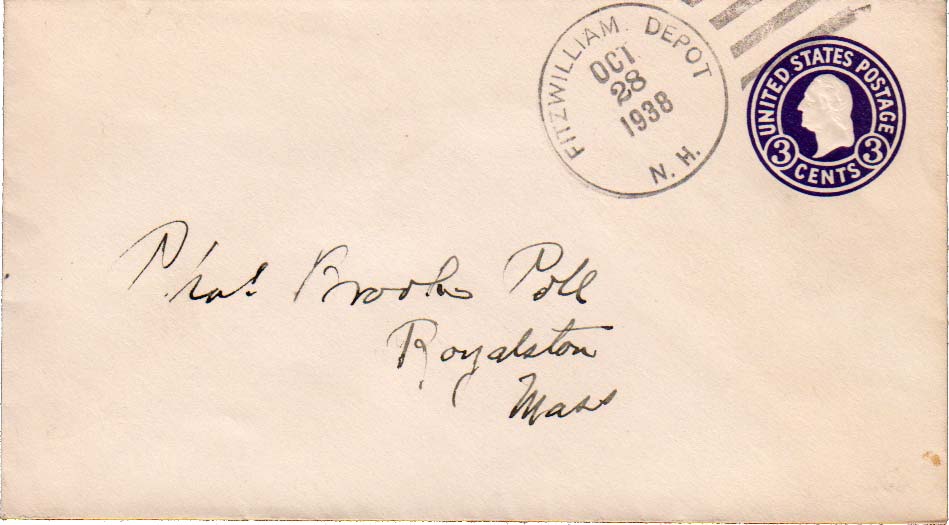 FITZWILLIAM DEPOT
OCT
28
1938
N. H.
UNITED STATES POSTAGE
3 3
CENTS
Brooks
Royalston
Mass